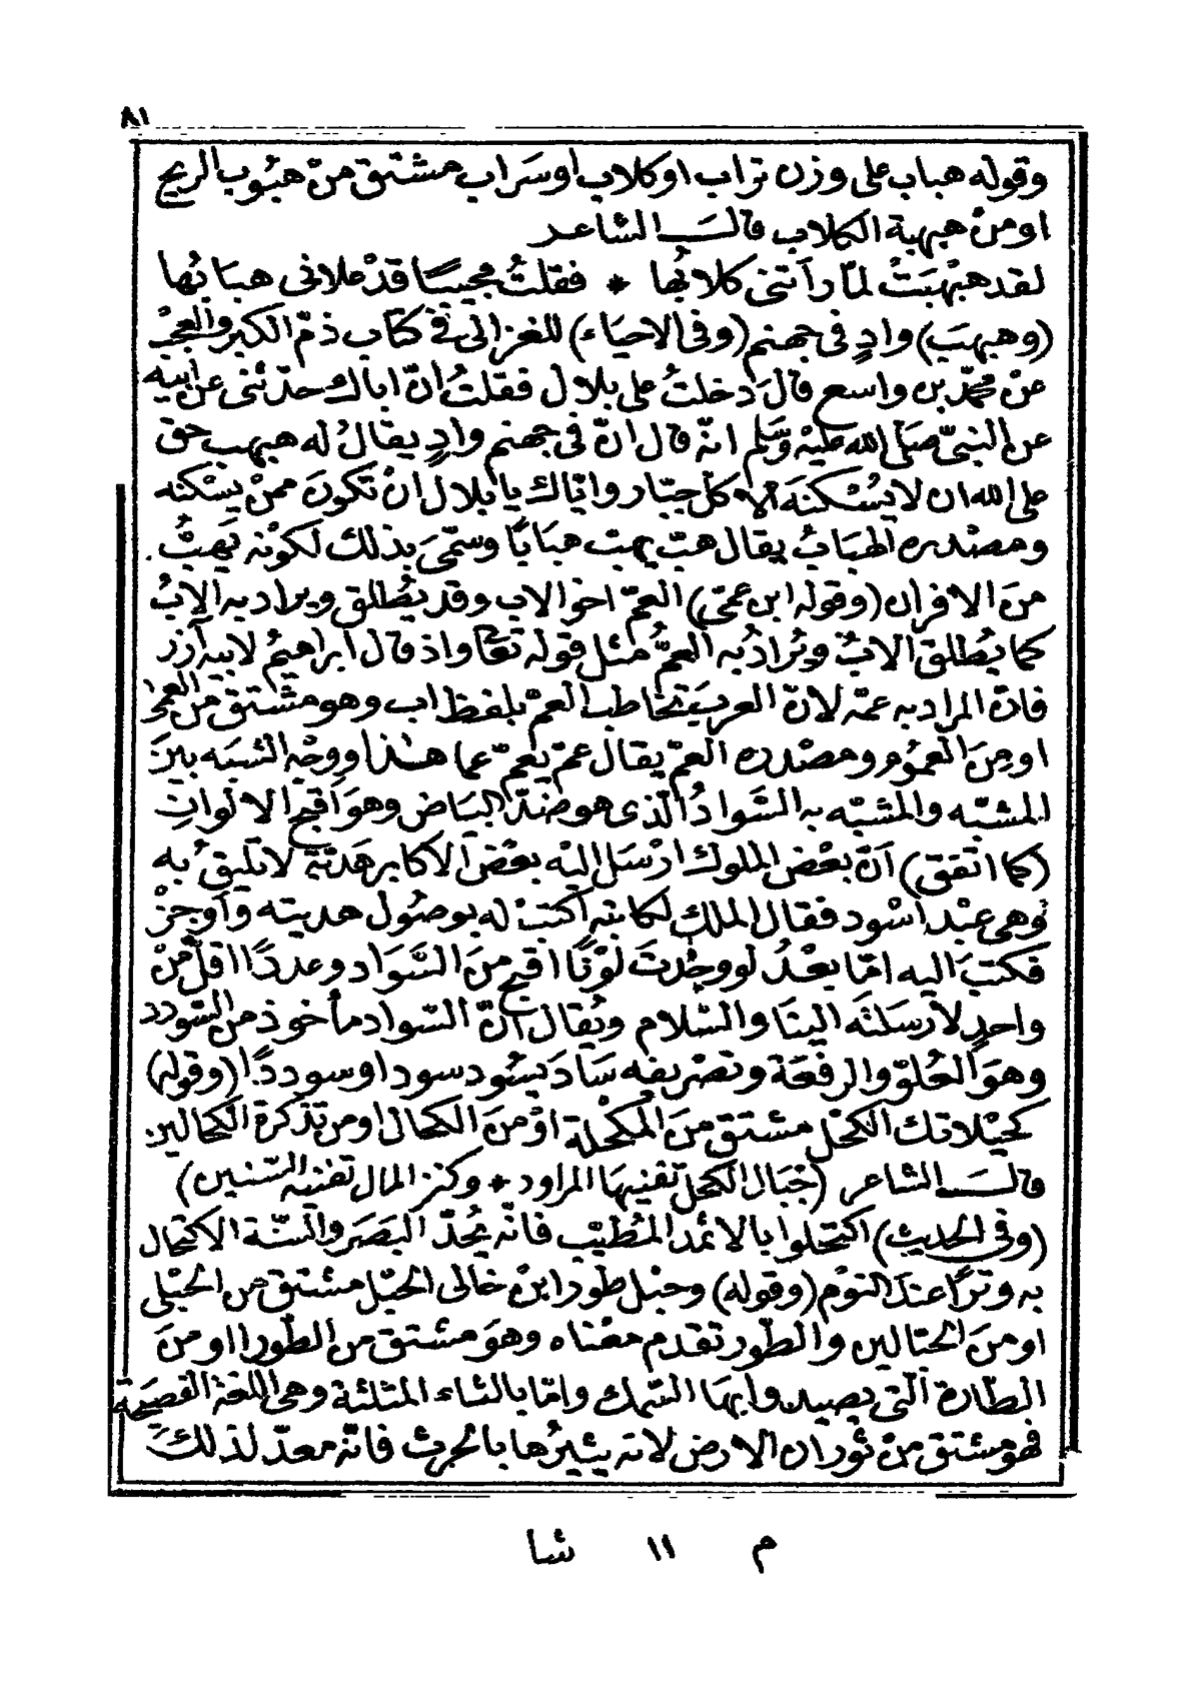 ٨١
وقوله هباب على وزن تراب او كلاب او سَراب مشتق منْ هبُوب الريح
او منْ هبهبة الكلاب قال الشاعر
لقد هبْهبَتْ لمّا رأتنى كلابُها * فقلتُ مجيبًا قدْ ملانى هبابُها
(وهبهبَ) وادٍ فى جهنم (وفى الاحياء) للغزالى فى كتاب ذمّ الكبر والعجْب
عنْ محمّد بن واسع قالَ دخلتُ على بلال فقلتُ انّ اباك حدّثنى عن أبيه
عن النبىّ صَلى الله عليْه وَسَلم انّه قال انّ فى جهنم وادٍ يقالُ له هبهب حق
على الله ان لا يسْكنهَ الا كلّ جبّار واياك يا بلال انْ تكونَ ممنْ يسْكنه
ومصْدره الهبَابُ يقال هبّ يهب هبابًا وسمّىَ بذلك لكوْنه يَهبُّ
منَ الافران (وقوله ابن عمّى) العمّ اخو الاب وقد يُطلق ويراد به الابُ
كما يُطلق الابُ ويُرادُ به العمُّ مثل قوله تعا واذ قال ابراهيمُ لابيه آزر
فانّ المراد به عمّه لانّ العربَ تخاطب العمّ بلفظ اب وهو مشتق من العمى
او منَ العمُوم ومصْدره العمّ يقال عمّ يعمّ عما هذا ووجْه الشبَه بينَ
المشبّه والمشبّه به السّوادُ الّذى هو ضدّ البيَاض وهوَ اقبح الالوانِ
(كما اتفق) انّ بعْض الملوك ارْسَل اليْه بعْض الاكابر هَديّة لا تليقُ به
وهى عبْد اسْود فقال الملك لكاتبه اكتبْ له بوصُول هديته وأوجزْ
فكتبَ اليه امّا بعْدُ لو وجدْتَ لوْنًا اقبح منَ السَّوَاد وعددًا اقلّ منْ
واحدٍ لأرسَلتَه اليْنا والسّلام ويُقال انّ السّواد مأخوذ من السّودد
وهوَ العُلوّ والرفعَة وتصْريفه سَادَ يسُود سودا وسوددًا (وقوله)
كحيْلاتك الكحْل مشتق منَ المكْحلة اوْ منَ الكحال او من تذكرة الكحالين
قال الشاعر (جبَال الكحل تفنيهَا المراود * وكنز المال تفنيه السّنين)
(وفى الحديث) اكتحلوا بالاثمد المُطيّب فانّه يُحدّ البَصَر والسنّة الاكتحال
به وترًا عندَ النوْم (وقوله) وحبْل طور ابنْ خالى الحبْل مشتق من الحبْلى
او منَ الحبّالين والطّور تقدم معْناه وهوَ مشتق من الطّور او منَ
الطّارة الّتى يصيد وابهَا السّمك وامّا بالثاء المثلثة وهى اللغة الفصيحَة
فهو مشتق منْ ثوران الارض لانه يثيرُها بالحرث فانّه معدّ لذلكَ
م ١١ شا